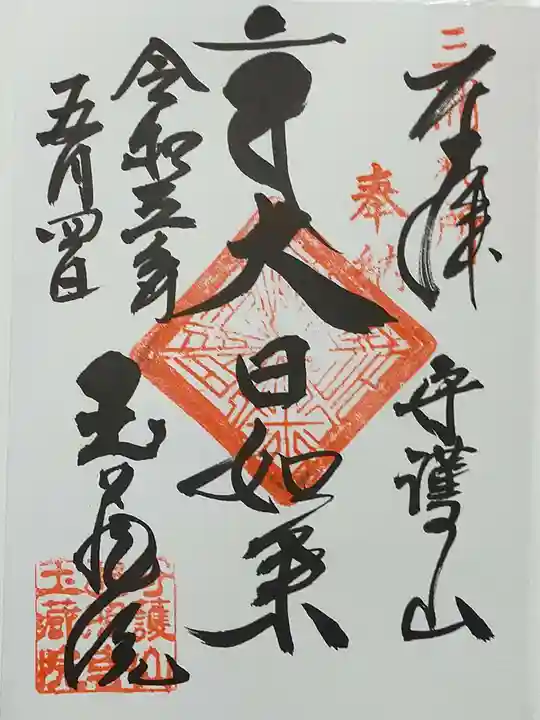 奉拝
奉納
守護山
大日如来
令和三年
五月四日
玉蔵院
守護山
玉蔵院